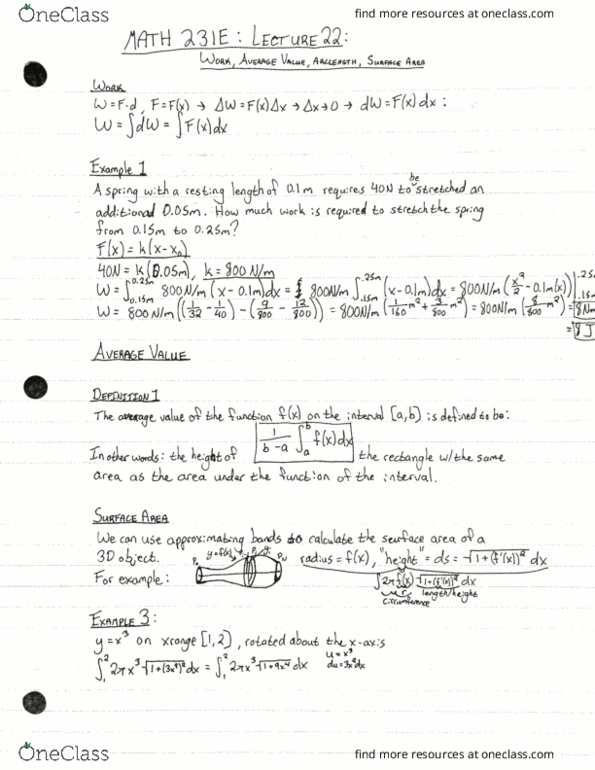 OneClass
find more resources at oneclass.com
MATH 231E: LECTURE 22:
WORK, AVERAGE VALUE, ARCLENGTH, SURFACE AREA
WORK
W=F·d, F=F(x) → ΔW=F(x)Δx → Δx→0 → dW=F(x)dx:
W=∫dW=∫F(x)dx
Example 1
A spring with a resting length of 0.1m requires 40N to be stretched an
additional 0.05m. How much work is required to stretch the spring
from 0.15m to 0.25m?
F(x)=k(x-x₀)
40N=k(0.05m), k=800N/m
W=∫_{0.15m}^{0.25m} 800N/m(x-0.1m)dx = 800N/m ∫_{.15m}^{.25m} (x-0.1m)dx = 800N/m(x²/2 - 0.1m(x))|_{.15m}^{.25
W= 800N/m((1/32 - 1/40) - (9/800 - 12/800)) = 800N/m(1/160 m² + 3/800 m²) = 800N/m(8/800 m²) = 8Nm
= 8J
AVERAGE VALUE
DEFINITION 1
The average value of the function f(x) on the interval [a,b) is defined to be:
1/(b-a) ∫_a^b f(x)dx
In other words: the height of the rectangle w/the same
area as the area under the function of the interval.
SURFACE AREA
We can use approximating bands to calculate the surface area of a
3D object. y=f(x) radius=f(x), "height"=ds=√(1+(f'(x))²) dx
For example: ∫2πf(x)√(1+(f'(x))²)dx
r length/height
circumference
EXAMPLE 3:
y=x³ on xrange [1,2], rotated about the x-axis
∫₁² 2πx³√(1+(3x²)²)dx = ∫₁² 2πx³√(1+9x⁴)dx u=x³
du=3x²dx
OneClass
find more resources at oneclass.com